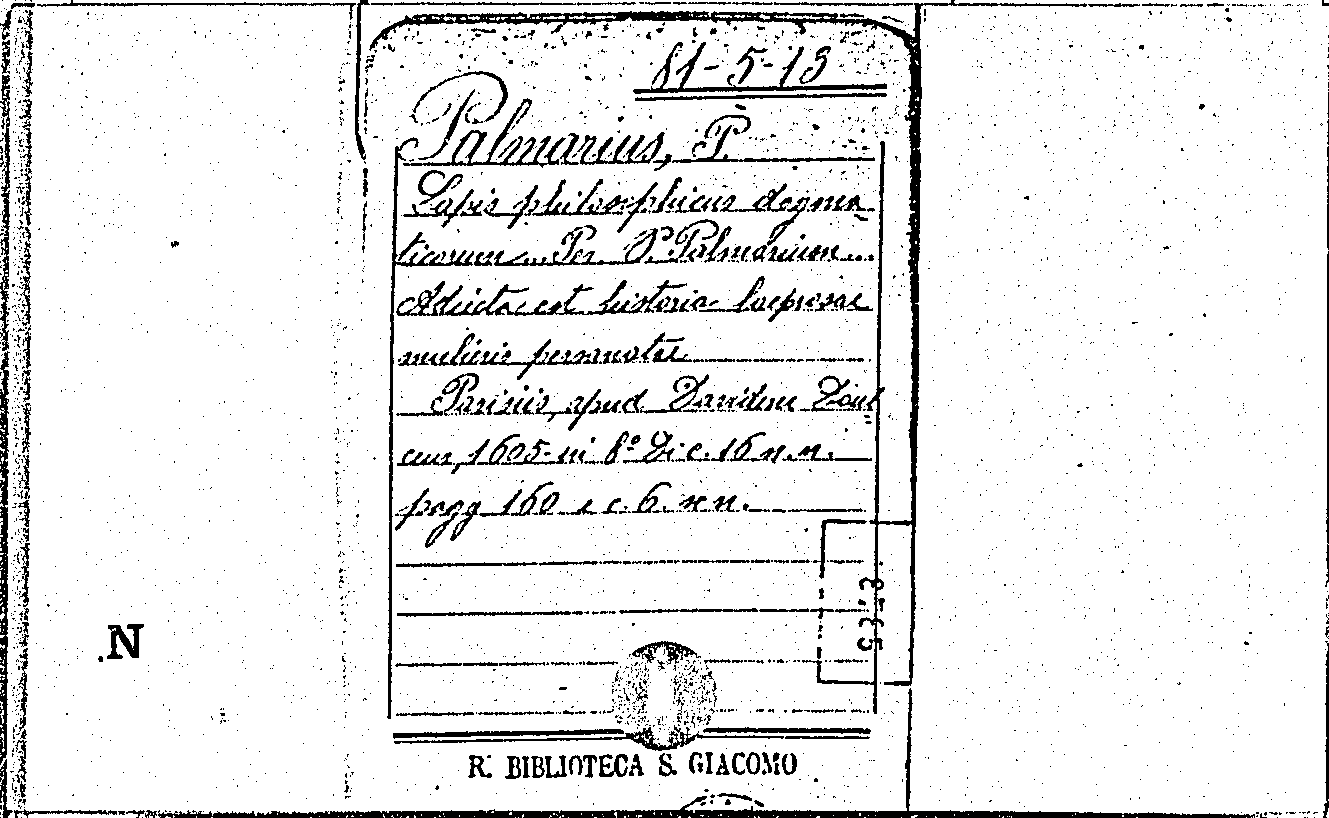 81-5-13
Palmarius, P.
Lapis philosophicus dogma
ticorum... Per P. Palmarium...
Adiecta est historia laeprosae
mulieris personatae
Parisiis, apud Davidem Doul
ceur, 1605. in 8° Di c. 16 n.n.
pagg 160 e c. 6. n n.
N
R. BIBLIOTECA S. GIACOMO